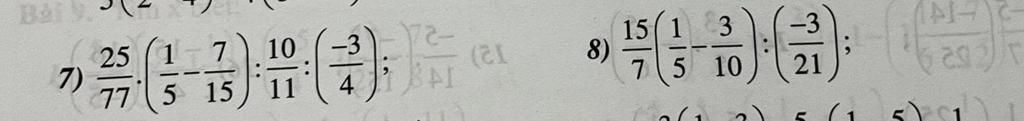 7) \frac{25}{77}.\left(\frac{1}{5}-\frac{7}{15}\right):\frac{10}{11}:\left(\frac{-3}{4}\right);
8) \frac{15}{7}\left(\frac{1}{5}-\frac{3}{10}\right):\left(\frac{-3}{21}\right);